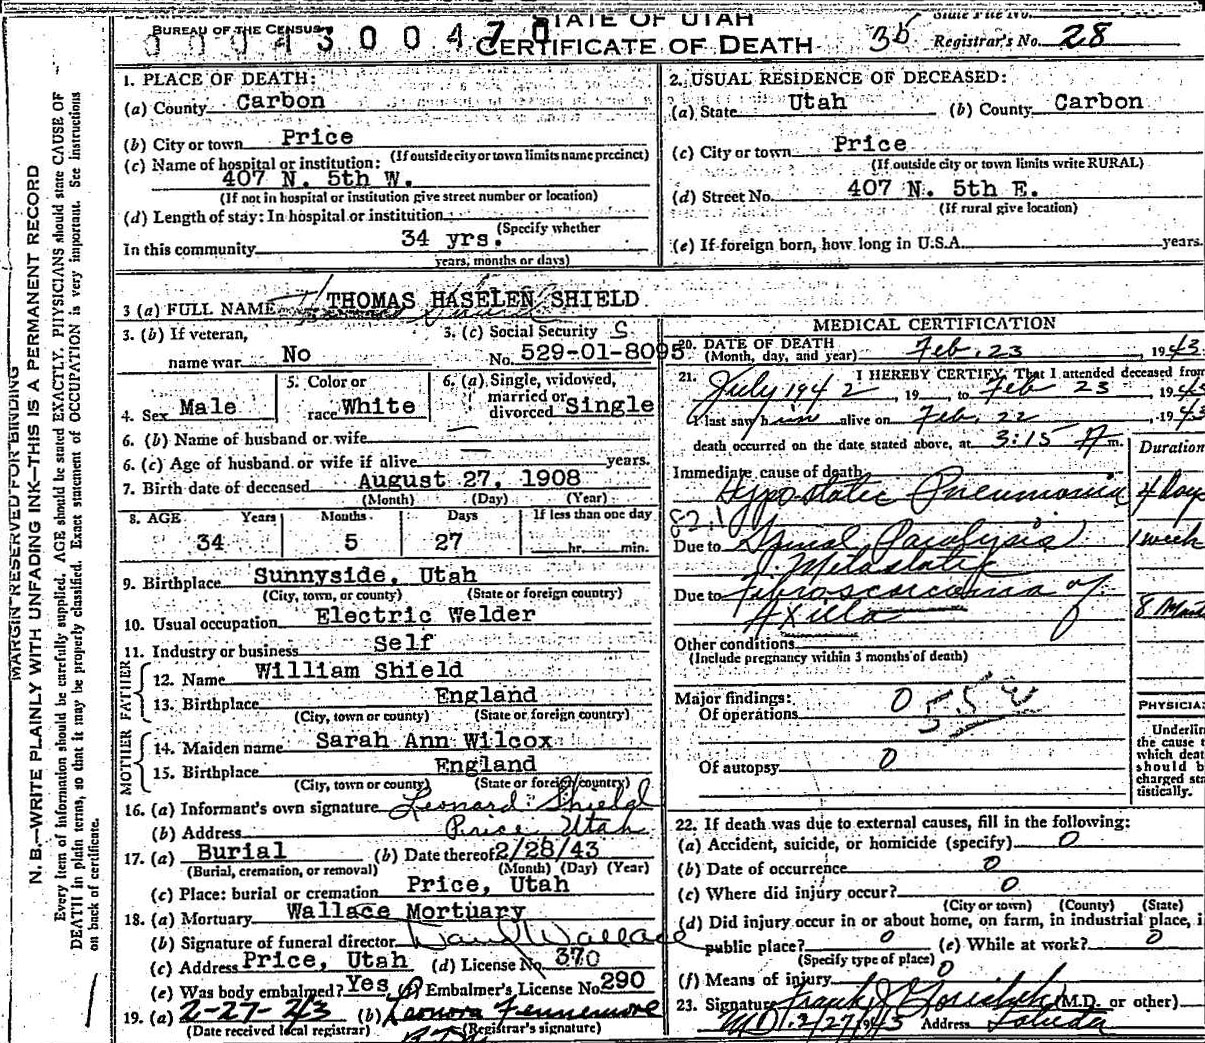 BUREAU OF THE CENSUS
STATE OF UTAH
CERTIFICATE OF DEATH
State File No.
Registrar's No. 28
MARGIN RESERVED FOR BINDING
N. B.—WRITE PLAINLY WITH UNFADING INK—THIS IS A PERMANENT RECORD
Every item of information should be carefully supplied. AGE should be stated EXACTLY. PHYSICIANS should state CAUSE OF
DEATH in plain terms, so that it may be properly classified. Exact statement of OCCUPATION is very important. See instructions
on back of certificate.
1. PLACE OF DEATH:
(a) County Carbon
(b) City or town Price
(If outside city or town limits name precinct)
(c) Name of hospital or institution:
407 N. 5th W.
(If not in hospital or institution give street number or location)
(d) Length of stay: In hospital or institution
(Specify whether
In this community 34 yrs.
years, months or days)
2. USUAL RESIDENCE OF DECEASED:
(a) State Utah (b) County Carbon
(c) City or town Price
(If outside city or town limits write RURAL)
(d) Street No. 407 N. 5th E.
(If rural give location)
(e) If foreign born, how long in U.S.A. years.
3 (a) FULL NAME THOMAS HASELEN SHIELD
3. (b) If veteran,
name war No
3. (c) Social Security
No. 529-01-8095
4. Sex Male
5. Color or
race White
6. (a) Single, widowed,
married or
divorced Single
6. (b) Name of husband or wife
6. (c) Age of husband or wife if alive years.
7. Birth date of deceased August 27, 1908
(Month) (Day) (Year)
8. AGE Years Months Days If less than one day
34 5 27 hr. min.
9. Birthplace Sunnyside, Utah
(City, town, or county) (State or foreign country)
10. Usual occupation Electric Welder
11. Industry or business Self
FATHER
12. Name William Shield
13. Birthplace England
(City, town or county) (State or foreign country)
MOTHER
14. Maiden name Sarah Ann Wilcox
15. Birthplace England
(City, town or county) (State or foreign country)
16. (a) Informant's own signature Leonard Shield
(b) Address Price, Utah
17. (a) Burial (b) Date thereof 2/28/43
(Burial, cremation, or removal) (Month) (Day) (Year)
(c) Place: burial or cremation Price, Utah
18. (a) Mortuary Wallace Mortuary
(b) Signature of funeral director Wallace
(c) Address Price, Utah (d) License No. 370
(e) Was body embalmed? Yes (f) Embalmer's License No. 290
19. (a) 2-27-43 (b) Leonora Fennemore
(Date received local registrar) (Registrar's signature)
MEDICAL CERTIFICATION
20. DATE OF DEATH
(Month, day, and year) Feb. 23, 1943.
21. I HEREBY CERTIFY, That I attended deceased from
July 1942, 19 , to Feb 23, 1943
I last saw him alive on Feb, 22, 1943
death occurred on the date stated above, at 3:15 A m.
Duration
Immediate cause of death
Hypostatic Pneumonia 4 Days
82.1
Due to Spinal Paralysis 1 week
Metastatic
Due to Fibrosarcoma of
Axilla
8
Other conditions
(Include pregnancy within 3 months of death)
Major findings:
Of operations 0
Of autopsy 0
PHYSICIA
Underlin
the cause t
which deat
should b
charged sta
tistically.
22. If death was due to external causes, fill in the following:
(a) Accident, suicide, or homicide (specify) 0
(b) Date of occurrence 0
(c) Where did injury occur? 0
(City or town) (County) (State)
(d) Did injury occur in or about home, on farm, in industrial place, i
public place? 0 (e) While at work? 0
(Specify type of place)
(f) Means of injury 0
23. Signature Frank J. (M.D. or other)
M.D. 2/27 1943 Address